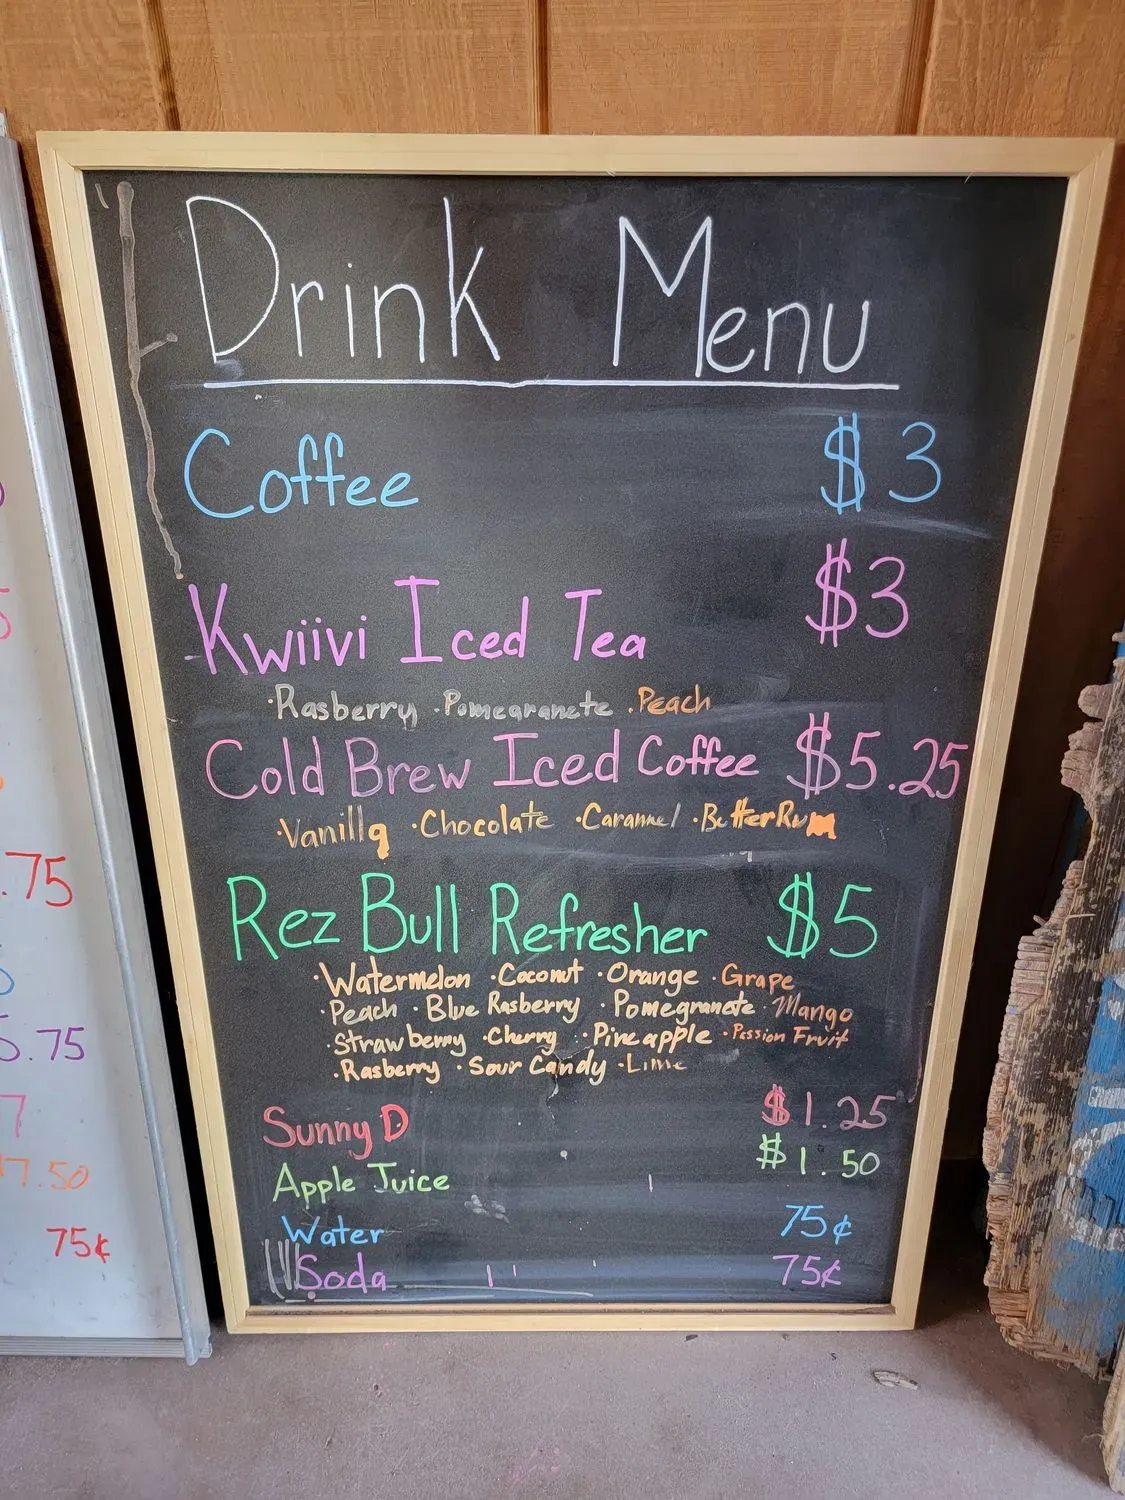 Drink Menu
Coffee $3
Kwiivi Iced Tea $3
·Rasberry ·Pomegranete ·Peach
Cold Brew Iced Coffee $5.25
·Vanilla ·Chocolate ·Caramel ·Butter Rum
Rez Bull Refresher $5
·Watermelon ·Coconut ·Orange ·Grape
·Peach ·Blue Rasberry ·Pomegranete ·Mango
·Strawberry ·Cherry ·Pineapple ·Passion Fruit
·Rasberry ·Sour Candy ·Lime
Sunny D $1.25
Apple Juice $1.50
Water 75¢
Soda 75¢
.75
5.75
7
7.50
75¢